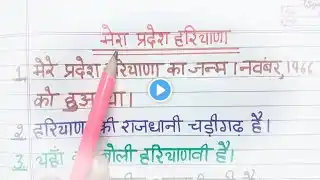 मेरा प्रदेश हरियाणा
1. मेरे प्रदेश हरियाणा का जन्म 1 नवंबर 1966
को हुआ था।
2. हरियाणा की राजधानी चड़ीगढ़ है।
3. यहाँ की बोली हरियाणवी है।